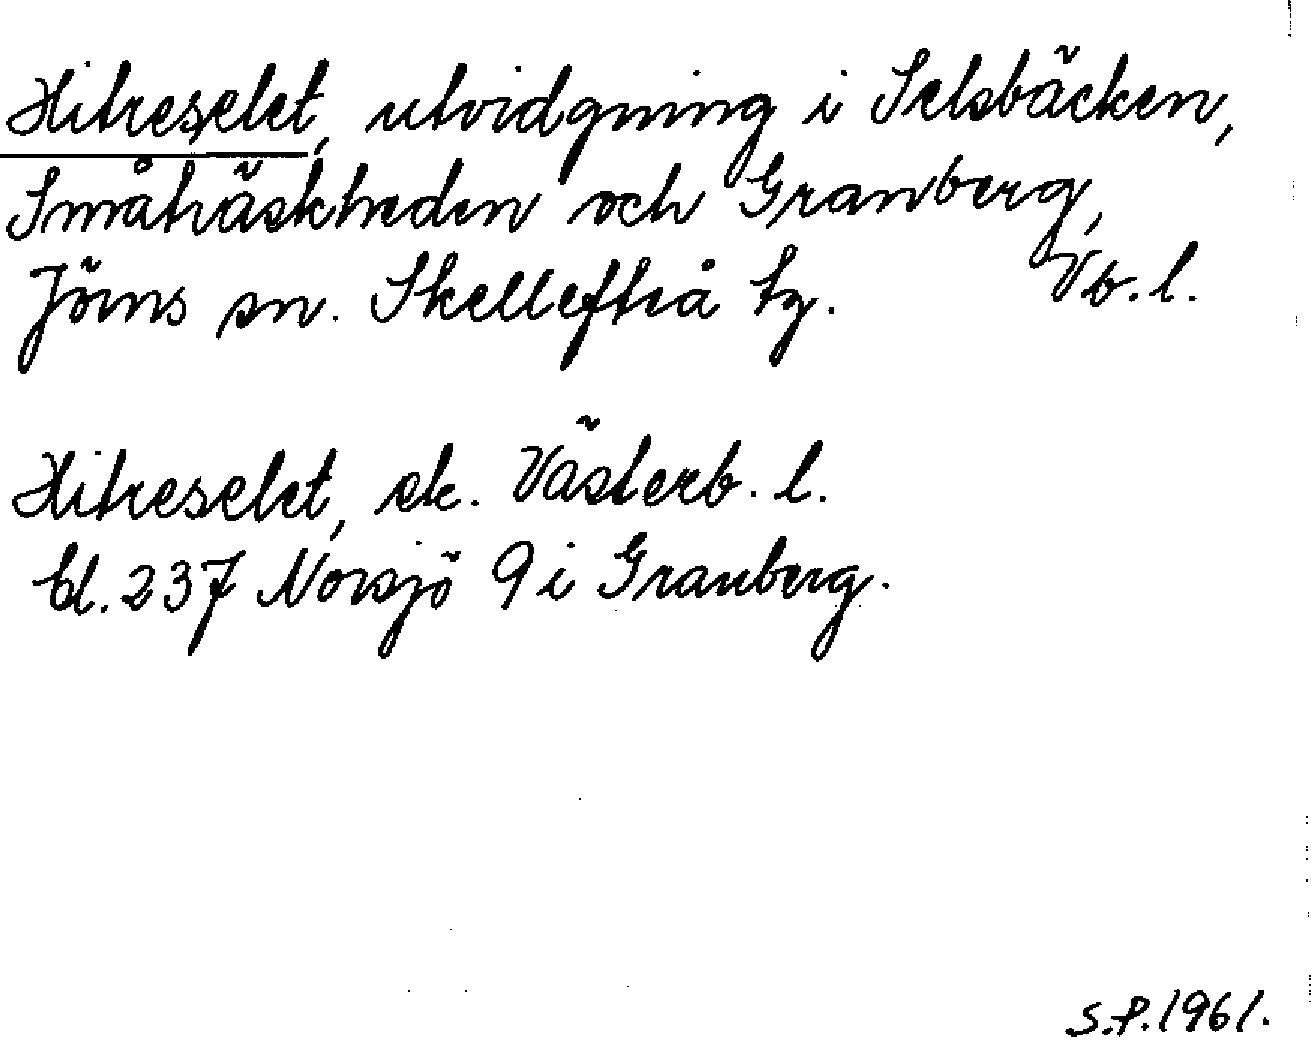 Hitreselet, utvidgning i Selsbäcken,
Småträskheden och Granberg,
Jörns sn. Skellefteå tg. Vb.l.
Hitreselet, ek. Västerb. l.
bl. 237 Norsjö 9 i Granberg.
S.P. 1961.